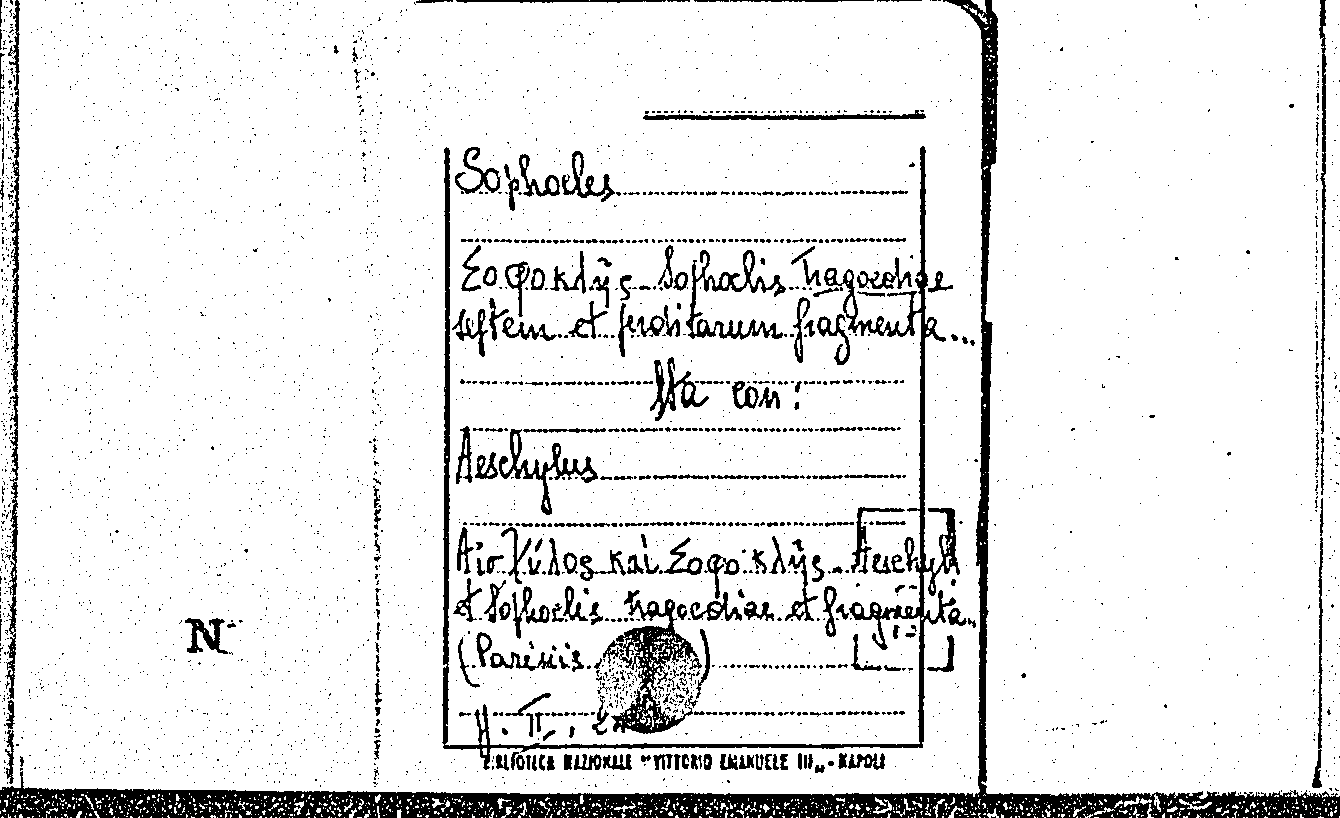 Sophocles
Σοφοκλῆς - Sophoclis Tragoediae
septem et perditarum fragmenta...
Sta con:
Aeschylus
Αἰσχύλος καὶ Σοφοκλῆς - Aeschyli
et Sophoclis tragoediae et fragmenta..
(Parisiis )
N
II,
BIBLIOTECA NAZIONALE "VITTORIO EMANUELE III„ - NAPOLI